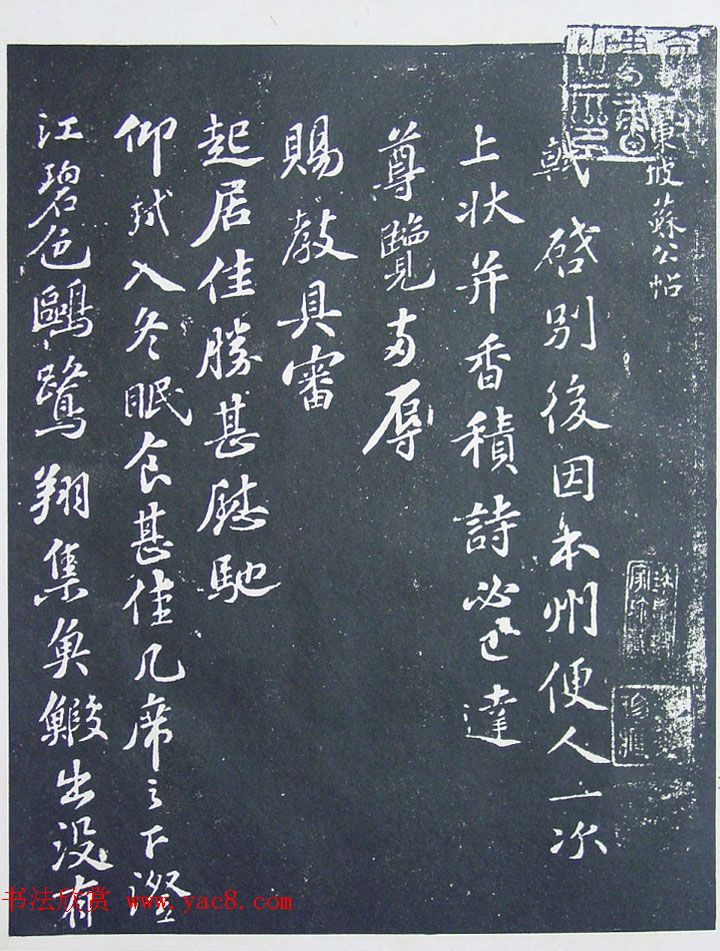 東坡蘇公帖
軾啓別後因本州便人一次
上狀并香積詩必已達
尊覽兩辱
賜教具審
起居佳勝甚慰馳
仰軾入冬眠食甚佳几席之下澄
江碧色鷗鷺翔集魚鰕出没有
书法欣赏 www.yac8.com